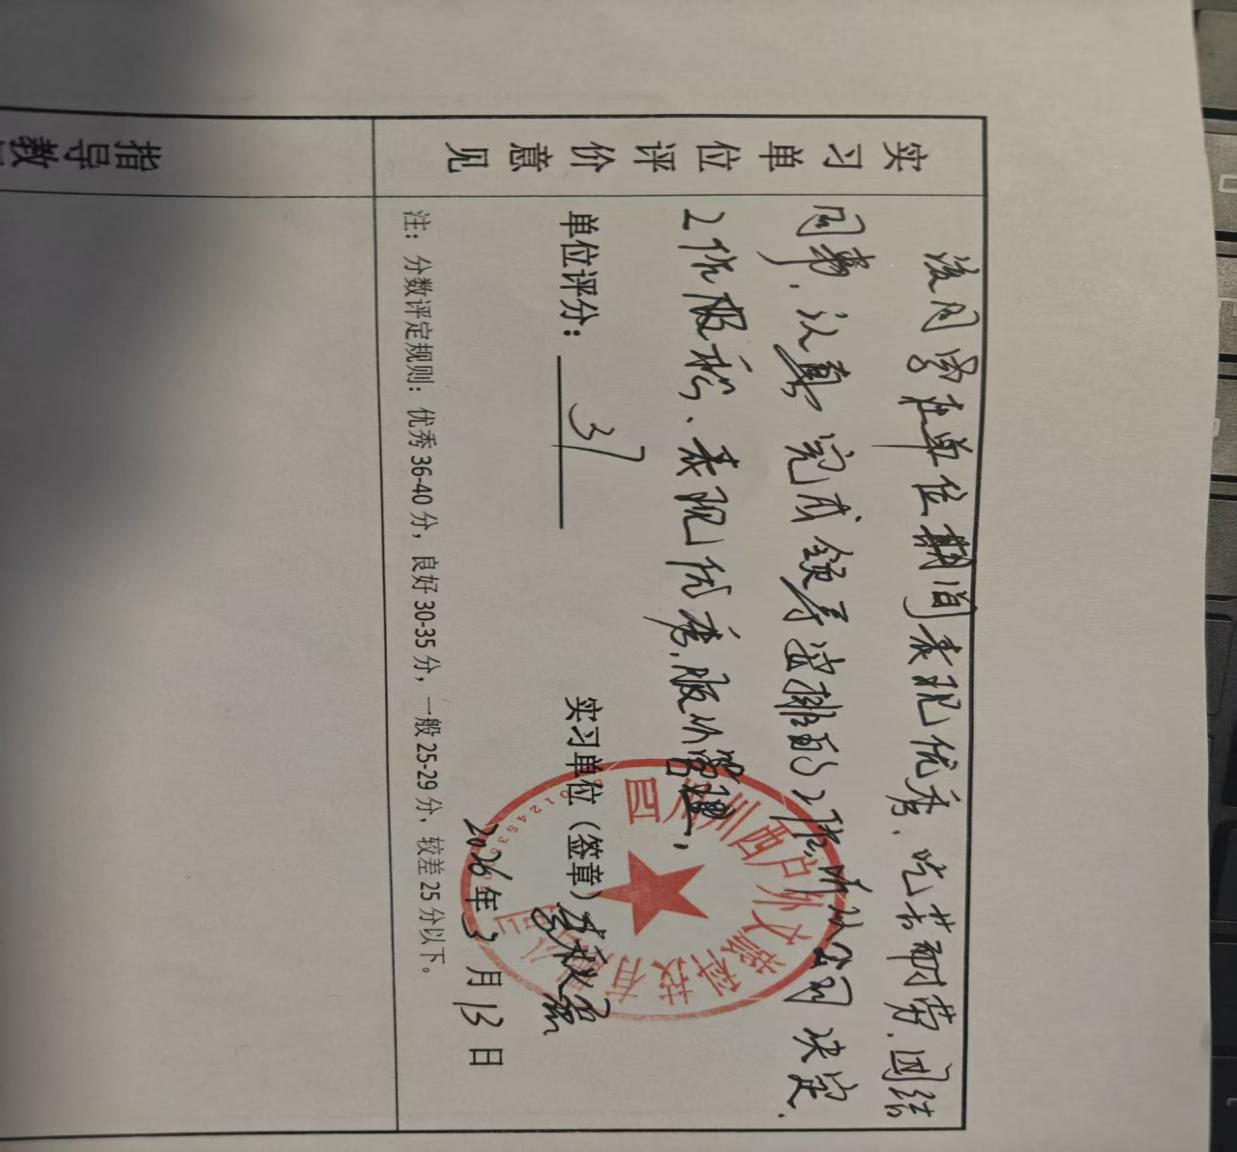 实习单位评价意见
该同学在单位期间表现优秀、吃苦耐劳、团结
同事、认真完成领导安排的工作、听从公司决定、
工作积极、表现优秀、服从管理,
单位评分: 37
实习单位(签章)
2026年3月13日
注:分数评定规则:优秀36-40分,良好30-35分,一般25-29分,较差25分以下。
四川西户外文旅科技有限公司
指导教